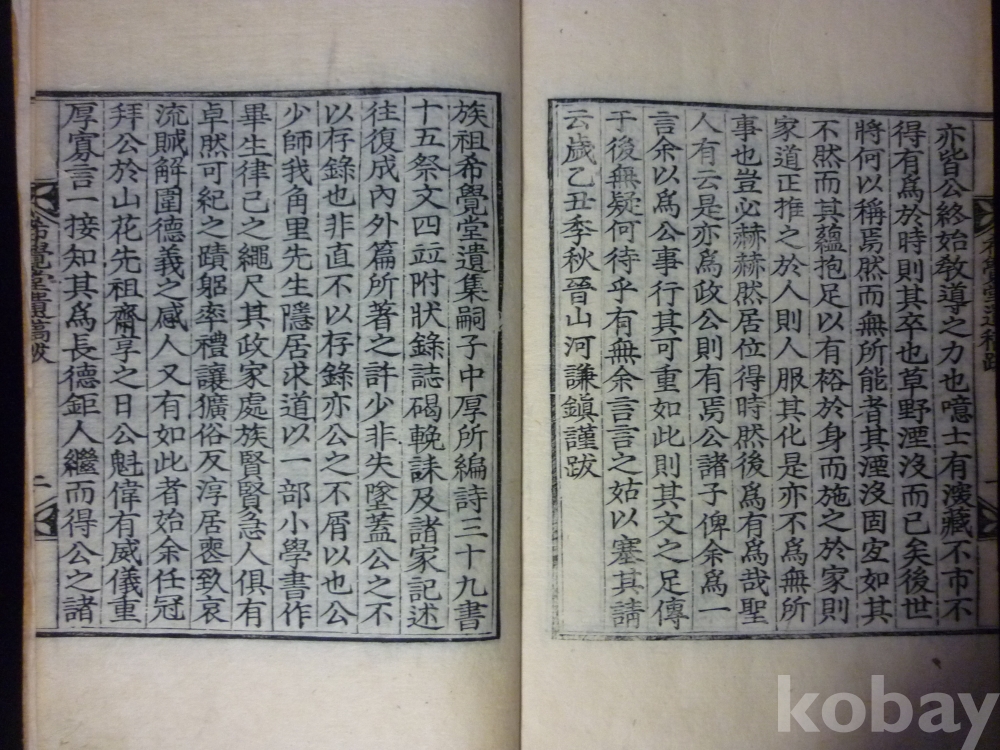 亦皆公終始敎導之力也噫士有深藏不市不
得有爲於時則其卒也草野湮沒而已矣後世
將何以稱焉然而無所能者其湮沒固宜如其
不然而其蘊抱足以有裕於身而施之於家則
家道正推之於人則人服其化是亦不爲無所
事也豈必赫赫然居位得時然後爲有爲哉聖
人有云是亦爲政公則有焉公諸子俾余爲一
言余以爲公事行其可重如此則其文之足傳
于後無疑何待乎有無余言言之姑以塞其請
云歲乙丑季秋晉山河謙鎭謹跋
族祖希覺堂遺集嗣子中厚所編詩三十九書
十五祭文四竝附狀錄誌碣輓誄及諸家記述
往復成內外篇所著之許少非失墜蓋公之不
以存錄也非直不以存錄亦公之不屑以也公
少師我角里先生隱居求道以一部小學書作
畢生律己之繩尺其政家處族賢賢急人俱有
卓然可紀之蹟躬率禮讓獷俗反淳居喪致哀
流賊解圍德義之感人又有如此者始余任冠
拜公於山花先祖齋享之日公魁偉有威儀重
厚寡言一接知其爲長德鉅人繼而得公之諸
希覺堂遺稿跋
二
kobay